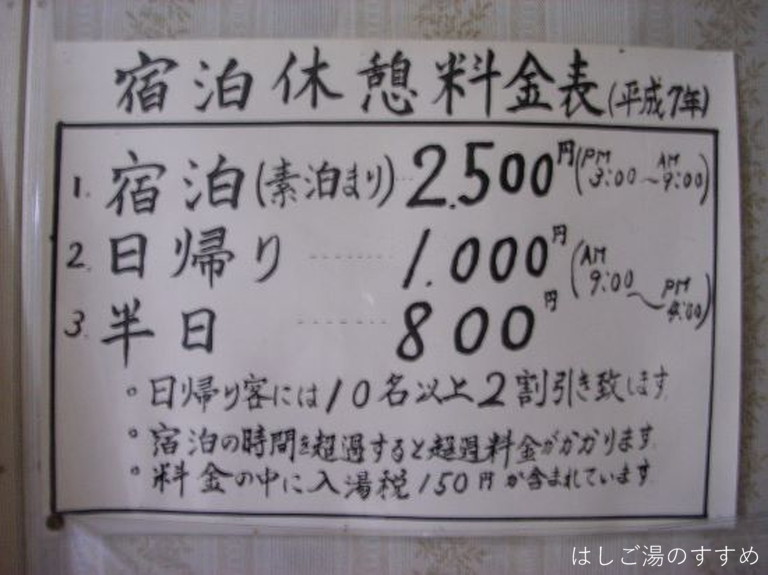 宿泊休憩料金表(平成7年)
1. 宿泊(素泊まり)…2.500円(PM3:00〜AM9:00)
2. 日帰り……1.000円(AM9:00〜PM4:00)
3. 半日……800円
。日帰り客には10名以上2割引き致します
。宿泊の時間を超過すると超過料金がかかります
。料金の中に入湯税150円が含まれています
はしご湯のすすめ